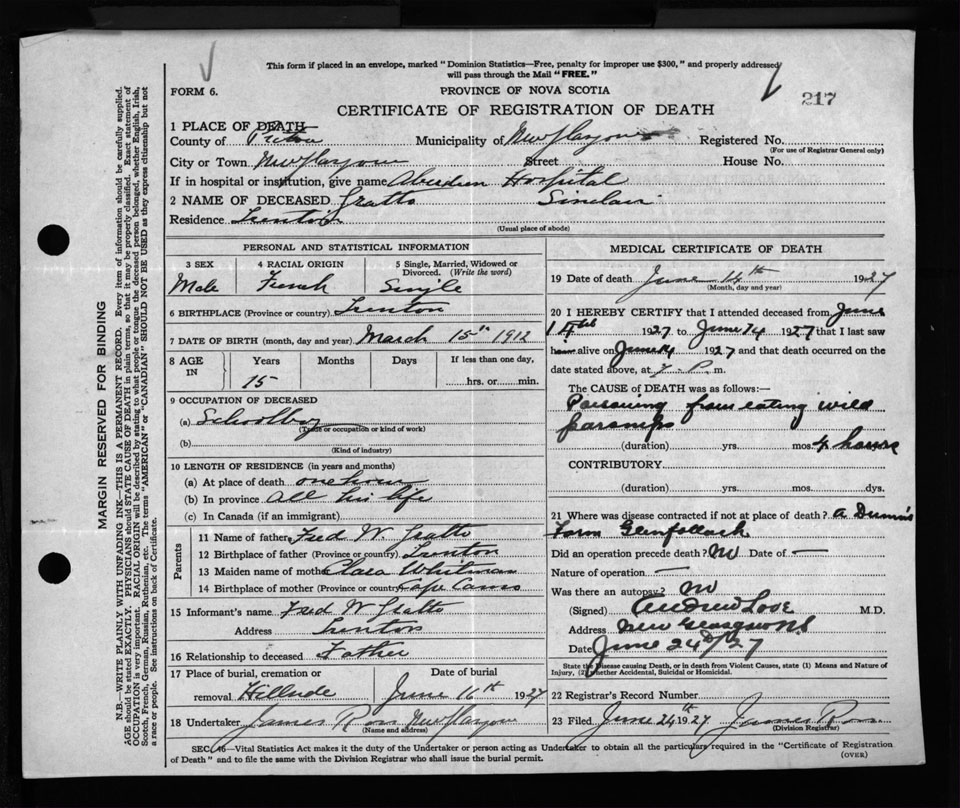 This form if placed in an envelope, marked "Dominion Statistics—Free, penalty for improper use $300," and properly addressed
will pass through the Mail "FREE."
FORM 6.
PROVINCE OF NOVA SCOTIA
217
CERTIFICATE OF REGISTRATION OF DEATH
1 PLACE OF DEATH
County of Pictou Municipality of New Glasgow Registered No.
(For use of Registrar General only)
City or Town New Glasgow Street House No.
If in hospital or institution, give name Aberdeen Hospital
2 NAME OF DECEASED Gratto Sinclair
Residence Trenton
(Usual place of abode)
PERSONAL AND STATISTICAL INFORMATION
3 SEX 4 RACIAL ORIGIN 5 Single, Married, Widowed or
Divorced. (Write the word)
Male French Single
6 BIRTHPLACE (Province or country) Trenton
7 DATE OF BIRTH (month, day and year) March 15th 1912
8 AGE IN Years Months Days If less than one day,
15 hrs. or min.
9 OCCUPATION OF DECEASED
(a) Schoolboy
(Trade or occupation or kind of work)
(b)
(Kind of industry)
10 LENGTH OF RESIDENCE (in years and months)
(a) At place of death one hour
(b) In province All his life
(c) In Canada (if an immigrant)
Parents
11 Name of father Fred W. Gratto
12 Birthplace of father (Province or country) Trenton
13 Maiden name of mother Clara Whitman
14 Birthplace of mother (Province or country) Cape Canso
15 Informant's name Fred W Gratto
Address Trenton
16 Relationship to deceased Father
17 Place of burial, cremation or Date of burial
removal Hillside June 16th 1927
18 Undertaker James Ross New Glasgow
(Name and address)
MEDICAL CERTIFICATE OF DEATH
19 Date of death June 14th 1927
(Month, day and year)
20 I HEREBY CERTIFY that I attended deceased from June
1927 to June 14 1927 that I last saw
alive on June 14 1927 and that death occurred on
date stated above, at 7. P. m.
The CAUSE OF DEATH was as follows:—
Poisoning from eating wild
parsnips
(duration) yrs. mos. 4 hours
CONTRIBUTORY
(duration) yrs. mos. dys.
21 Where was disease contracted if not at place of death? A Dunn's
Farm Glenfalloch
Did an operation precede death? No Date of —
Nature of operation —
Was there an autopsy? No
(Signed) Andrew Love M.D.
Address New Glasgow NS
Date June 24th/27
State the Disease causing Death, or in death from Violent Causes, state (1) Means and Nature of
Injury, (2) whether Accidental, Suicidal or Homicidal.
22 Registrar's Record Number
23 Filed June 24th 1927 James Ross
(Division Registrar)
SEC. 16—Vital Statistics Act makes it the duty of the Undertaker or person acting as Undertaker to obtain all the particulars required in the "Certificate of Registration
of Death" and to file the same with the Division Registrar who shall issue the burial permit.
(OVER)
MARGIN RESERVED FOR BINDING
N.B.—WRITE PLAINLY WITH UNFADING INK—THIS IS A PERMANENT RECORD. Every item of information should be carefully supplied.
AGE should be stated EXACTLY. PHYSICIANS should STATE CAUSE OF DEATH in plain terms, so that it may be properly classified. Exact statement of
OCCUPATION is very important. RACIAL ORIGIN will be described by stating to what people or tongue the deceased person belonged, whether English, Irish,
Scotch, French, German, Russian, Ruthenian, etc. The terms "AMERICAN" or "CANADIAN" SHOULD NOT BE USED as they express citizenship but not
a race or people. See instructions on back of Certificate.